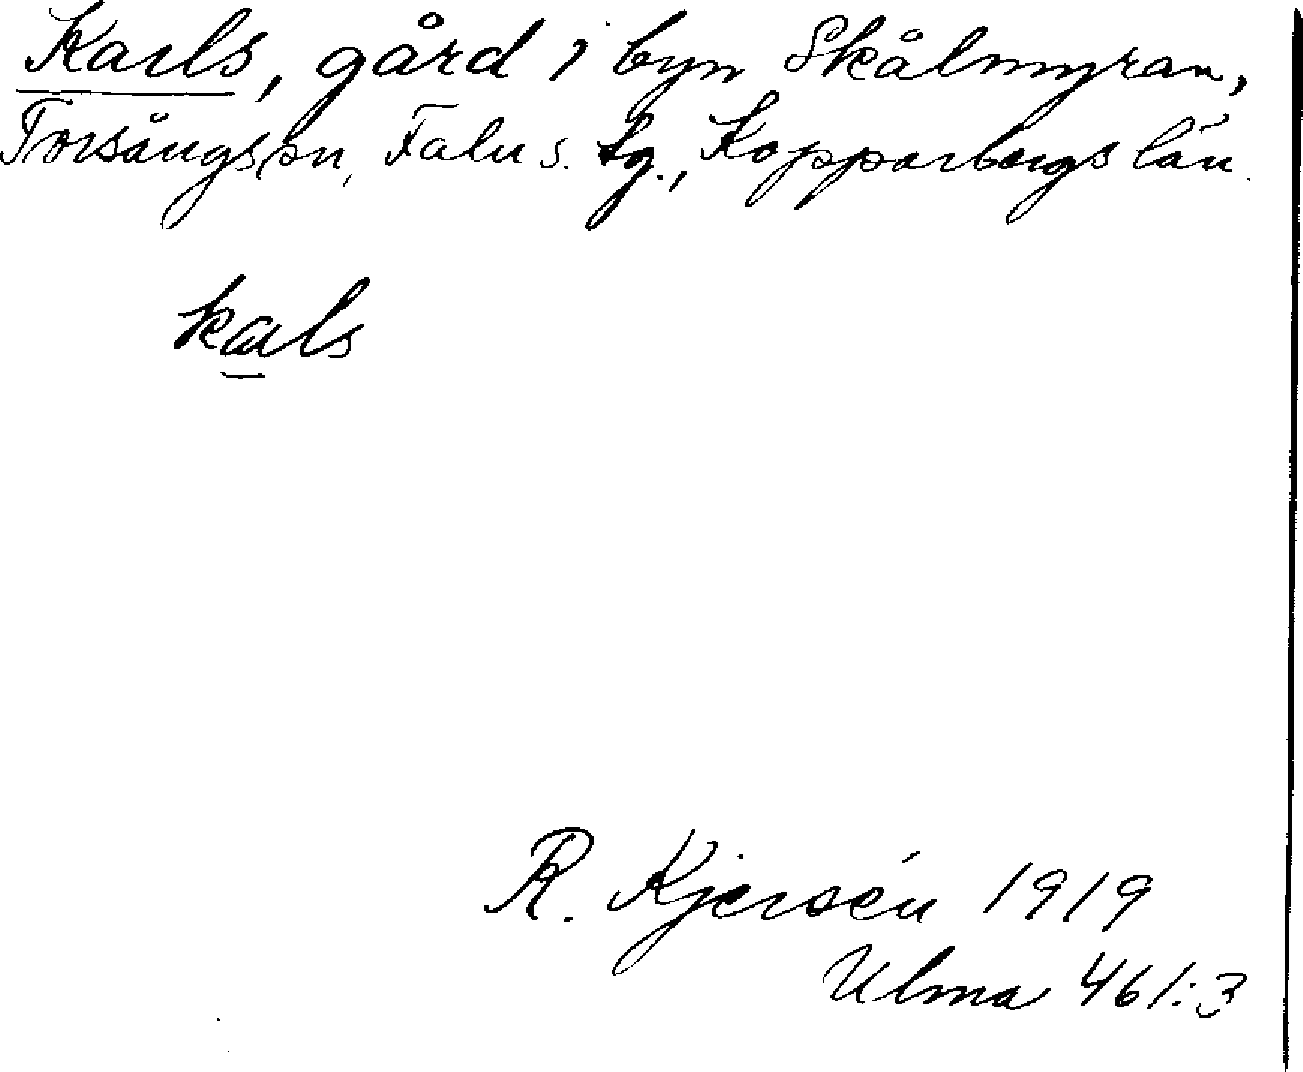 Karls, gård i byn Skålmyran,
Torsångs sn, Falu s. tg., Kopparbergs län.
kals
R. Kjersén 1919
Ulma 461:3